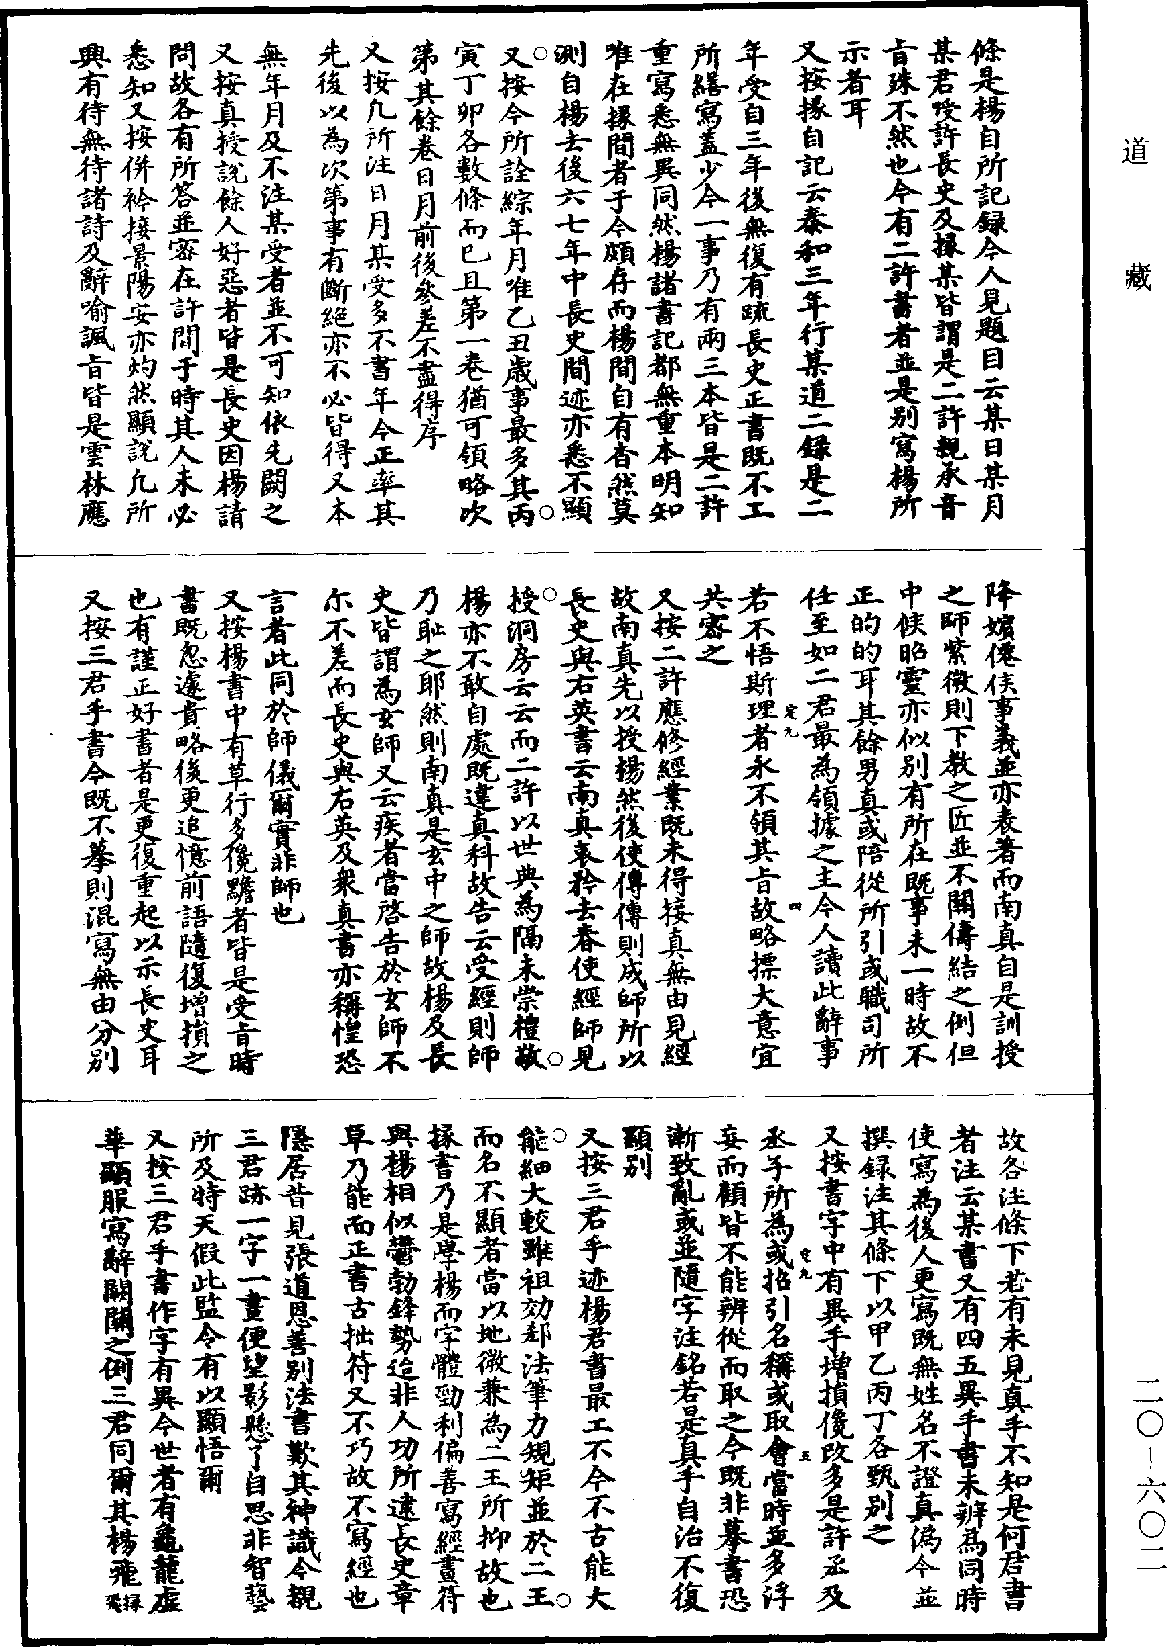 道藏
二〇—六〇二
條是楊自所記録今人見題目云某日某月
某君受許長史及掾某皆謂是二許親承音
旨殊不然也今有二許書者並是别寫楊所
示者耳
又按掾自記云泰和三年行某道二録是二
年受自三年後無復有疏長史正書既不工
所繕寫蓋少今一事乃有兩三本皆是二許
重寫悉無異同然楊諸書記都無重本明知
唯在掾間者于今頗存而楊間自有杳然莫
測自楊去後六七年中長史間迹亦悉不顯
又按今所詮綜年月唯乙丑歲事最多其丙
寅丁卯各數條而已且第一卷猶可領略次
第其餘卷日月前後參差不盡得序
又按凡所注日月某受多不書年今正率其
先後以為次第事有斷絶亦不必皆得又本
無年月及不注某受者並不可知依先闕之
又按真授說餘人好惡者皆是長史因楊請
問故各有所答並密在許間于時其人未必
悉知又按併衿接景陽安亦灼然顯說凡所
興有待無待諸詩及辭喻諷旨皆是雲林應
降嬪僊侯事義並亦表著而南真自是訓授
之師紫微則下教之匠並不關儔結之例但
中候昭靈亦似别有所在既事未一時故不
正的的耳其餘男真或陪從所引或職司所
任至如二君最為領據之主今人讀此辭事
若不悟斯理者永不領其旨故略摽大意宜
共密之
又按二許應修經業既未得接真無由見經
故南真先以授楊然後使傳傳則成師所以
長史與右英書云南真哀矜去春使經師見
授洞房云云而二許以世典為隔未崇禮敬
楊亦不敢自處既違真科故告云受經則師
乃耻之耶然則南真是玄中之師故楊及長
史皆謂為玄師又云疾者當啓告於玄師不
尓不差而長史與右英及衆真書亦稱惶恐
言者此同於師儀爾實非師也
又按楊書中有草行多儳黵者皆是受旨時
書既忽遽貴略後更追憶前語隨復增損之
也有謹正好書者是更復重起以示長史耳
又按三君手書今既不摹則混寫無由分别
故各注條下若有未見真手不知是何君書
者注云某書又有四五異手書未辨為同時
使寫為後人更寫既無姓名不證真偽今並
撰録注其條下以甲乙丙丁各甄别之
又按書字中有異手增損儳改多是許丞及
丞子所為或招引名稱或取會當時並多浮
妄而顧皆不能辨從而取之今既非摹書恐
漸致亂或並隨字注銘若是真手自治不復
顯别
又按三君手迹楊君書最工不今不古能大
能細大較雖祖効郄法筆力規矩並於二王
而名不顯者當以地微兼為二王所抑故也
掾書乃是學楊而字體勁利偏善寫經畫符
與楊相似鬱勃鋒勢迨非人功所逮長史章
草乃能而正書古拙符又不巧故不寫經也
隱居昔見張道恩善别法書歎其神識今覩
三君跡一字一畫便望影懸了自思非智藝
所及特天假此監令有以顯悟爾
又按三君手書作字有異今世者有龜龍虚
華顯服寫辭闕關之例三君同爾其楊飛